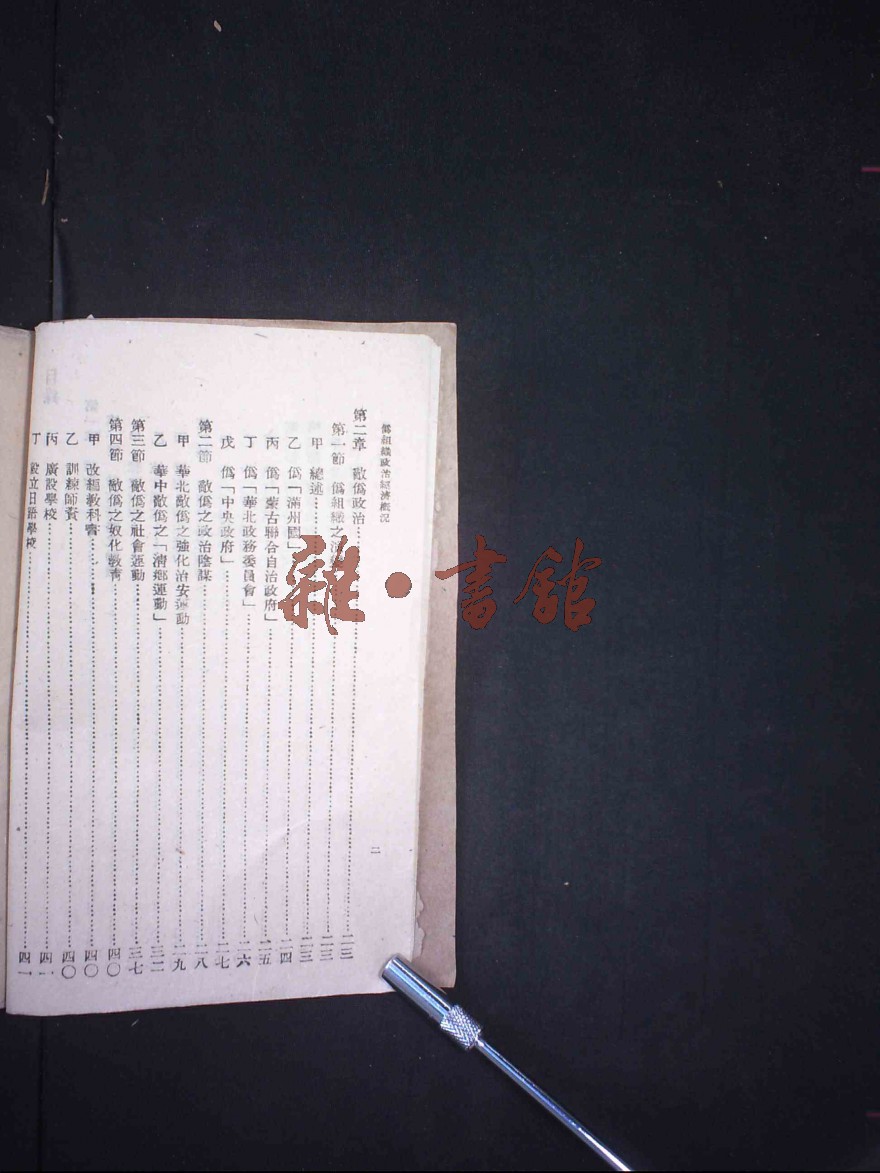 偽組織政治經濟概況
第二章　敵偽政治……二三
第一節　偽組織之……二三
甲　總述……二三
乙　偽「滿州國」……二四
丙　偽「蒙古聯合自治政府」……二五
丁　偽「華北政務委員會」……二六
戊　偽「中央政府」……二七
第二節　敵偽之政治陰謀……二八
甲　華北敵偽之強化治安運動……二九
乙　華中敵偽之「清鄉運動」……三二
第三節　敵偽之社會運動……三七
第四節　敵偽之奴化教育……四〇
甲　改編教科書……四〇
乙　訓練師資……四〇
丙　廣設學校……四一
丁　設立日語學校……四一
二
雜·書館